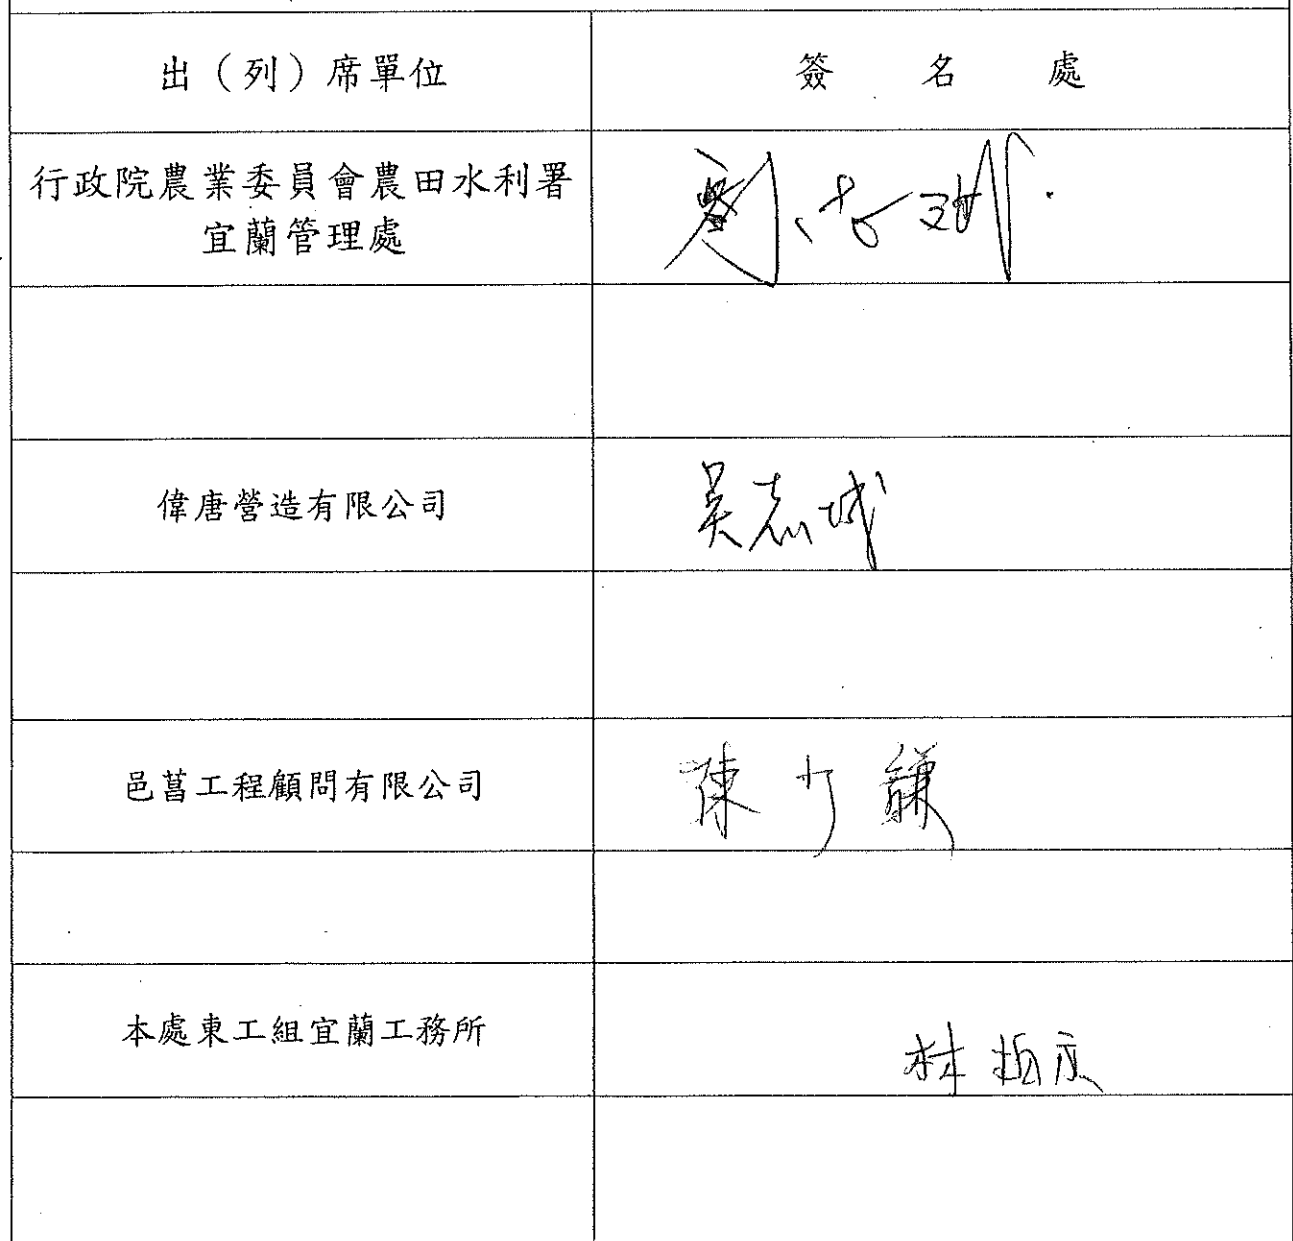 出（列）席單位
簽名處
行政院農業委員會農田水利署
宜蘭管理處
偉唐營造有限公司
吳志城
邑菖工程顧問有限公司
陳少鎌
本處東工組宜蘭工務所
林